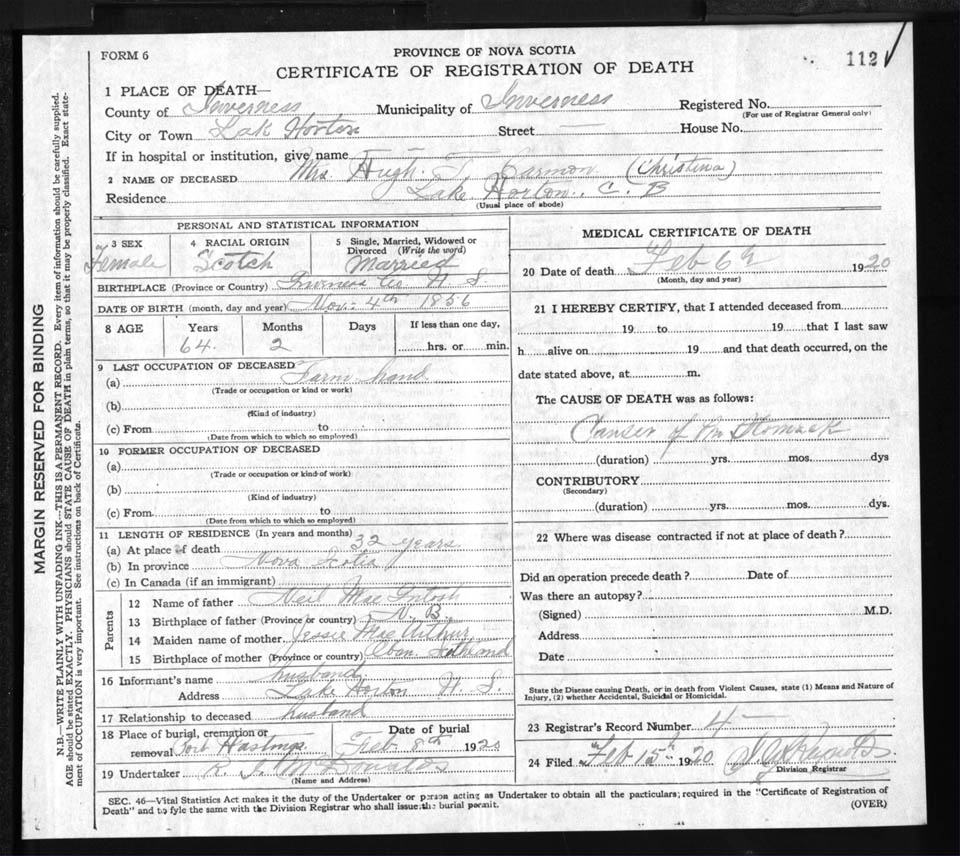 FORM 6
PROVINCE OF NOVA SCOTIA
112
CERTIFICATE OF REGISTRATION OF DEATH
1 PLACE OF DEATH—
County of Inverness Municipality of Inverness Registered No.
(For use of Registrar General only)
City or Town Lak Horton Street — House No.
If in hospital or institution, give name
2 NAME OF DECEASED Mrs. Hugh (Christina)
Residence Lake Horton, C. B
(Usual place of abode)
PERSONAL AND STATISTICAL INFORMATION
3 SEX Female
4 RACIAL ORIGIN Scotch
5 Single, Married, Widowed or Divorced (Write the word) Married
BIRTHPLACE (Province or Country) Inverness Co N. S.
DATE OF BIRTH (month, day and year) Nov. 4th 1856
8 AGE Years 64 Months 2 Days If less than one day, hrs. or min.
9 LAST OCCUPATION OF DECEASED
(a) Farm hand
(Trade or occupation or kind or work)
(b)
(Kind of industry)
(c) From to
(Date from which to which so employed)
10 FORMER OCCUPATION OF DECEASED
(a)
(Trade or occupation or kind of work)
(b)
(Kind of industry)
(c) From to
(Date from which to which so employed)
11 LENGTH OF RESIDENCE (In years and months)
(a) At place of death 32 years
(b) In province Nova Scotia
(c) In Canada (if an immigrant)
Parents
12 Name of father Neil Mac Intosh
13 Birthplace of father (Province or country) N. B
14 Maiden name of mother Jessie Mac Arthur
15 Birthplace of mother (Province or country) Oban
16 Informant's name husband
Address Lake Horton N. S.
17 Relationship to deceased husband
18 Place of burial, cremation or removal Port Hastings
Date of burial Feb. 8th 1920
19 Undertaker R. J. McDonalds
(Name and Address)
MEDICAL CERTIFICATE OF DEATH
20 Date of death Feb 6th 1920
(Month, day and year)
21 I HEREBY CERTIFY, that I attended deceased from
19 to 19 that I last saw
h alive on 19 and that death occurred, on the
date stated above, at m.
The CAUSE OF DEATH was as follows:
Canser of Stomack
(duration) yrs. mos. dys
CONTRIBUTORY
(Secondary)
(duration) yrs. mos. dys.
22 Where was disease contracted if not at place of death?
Did an operation precede death? Date of
Was there an autopsy?
(Signed) M.D.
Address
Date
State the Disease causing Death, or in death from Violent Causes, state (1) Means and Nature of
Injury, (2) whether Accidental, Suicidal or Homicidal.
23 Registrar's Record Number 4 —
24 Filed Feb 15th 1920
Division Registrar
SEC. 46—Vital Statistics Act makes it the duty of the Undertaker or person acting as Undertaker to obtain all the particulars; required in the "Certificate of Registration of
Death" and to fyle the same with the Division Registrar who shall issue the burial permit.
(OVER)
MARGIN RESERVED FOR BINDING
N.B.—WRITE PLAINLY WITH UNFADING INK—THIS IS A PERMANENT RECORD. Every item of information should be carefully supplied.
AGE should be stated EXACTLY. PHYSICIANS should STATE CAUSE OF DEATH in plain terms, so that it may be properly classified. Exact state-
ment of OCCUPATION is very important. See instructions on back of Certificate.